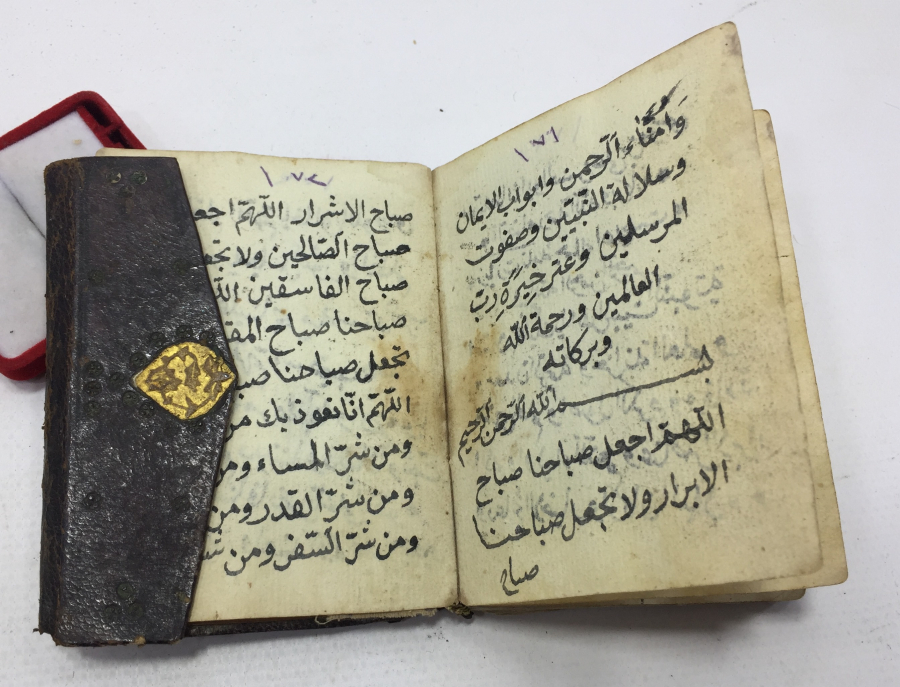 ١٧١
وأمناء الرحمن وابواب الايمان
وسلالة النبيين وصفوت
المرسلين وعتر خِيَرَةِ رب
العالمين ورحمة الله
وبركاته
بسم الله الرحمن الرحيم
اللهم اجعل صباحنا صباح
الابرار ولا تجعل صباحنا
صباح
صباح الاشرار اللهم اجعـ
صباح الصالحين ولا تجعـ
صباح الفاسقين اللـ
صباحنا صباح المقـ
تجعل صباحنا صبـ
اللهم انا نعوذ بك من
ومن شرّ المساء ومن
ومن شرّ القدر ومن
ومن شرّ السفر ومن شـ